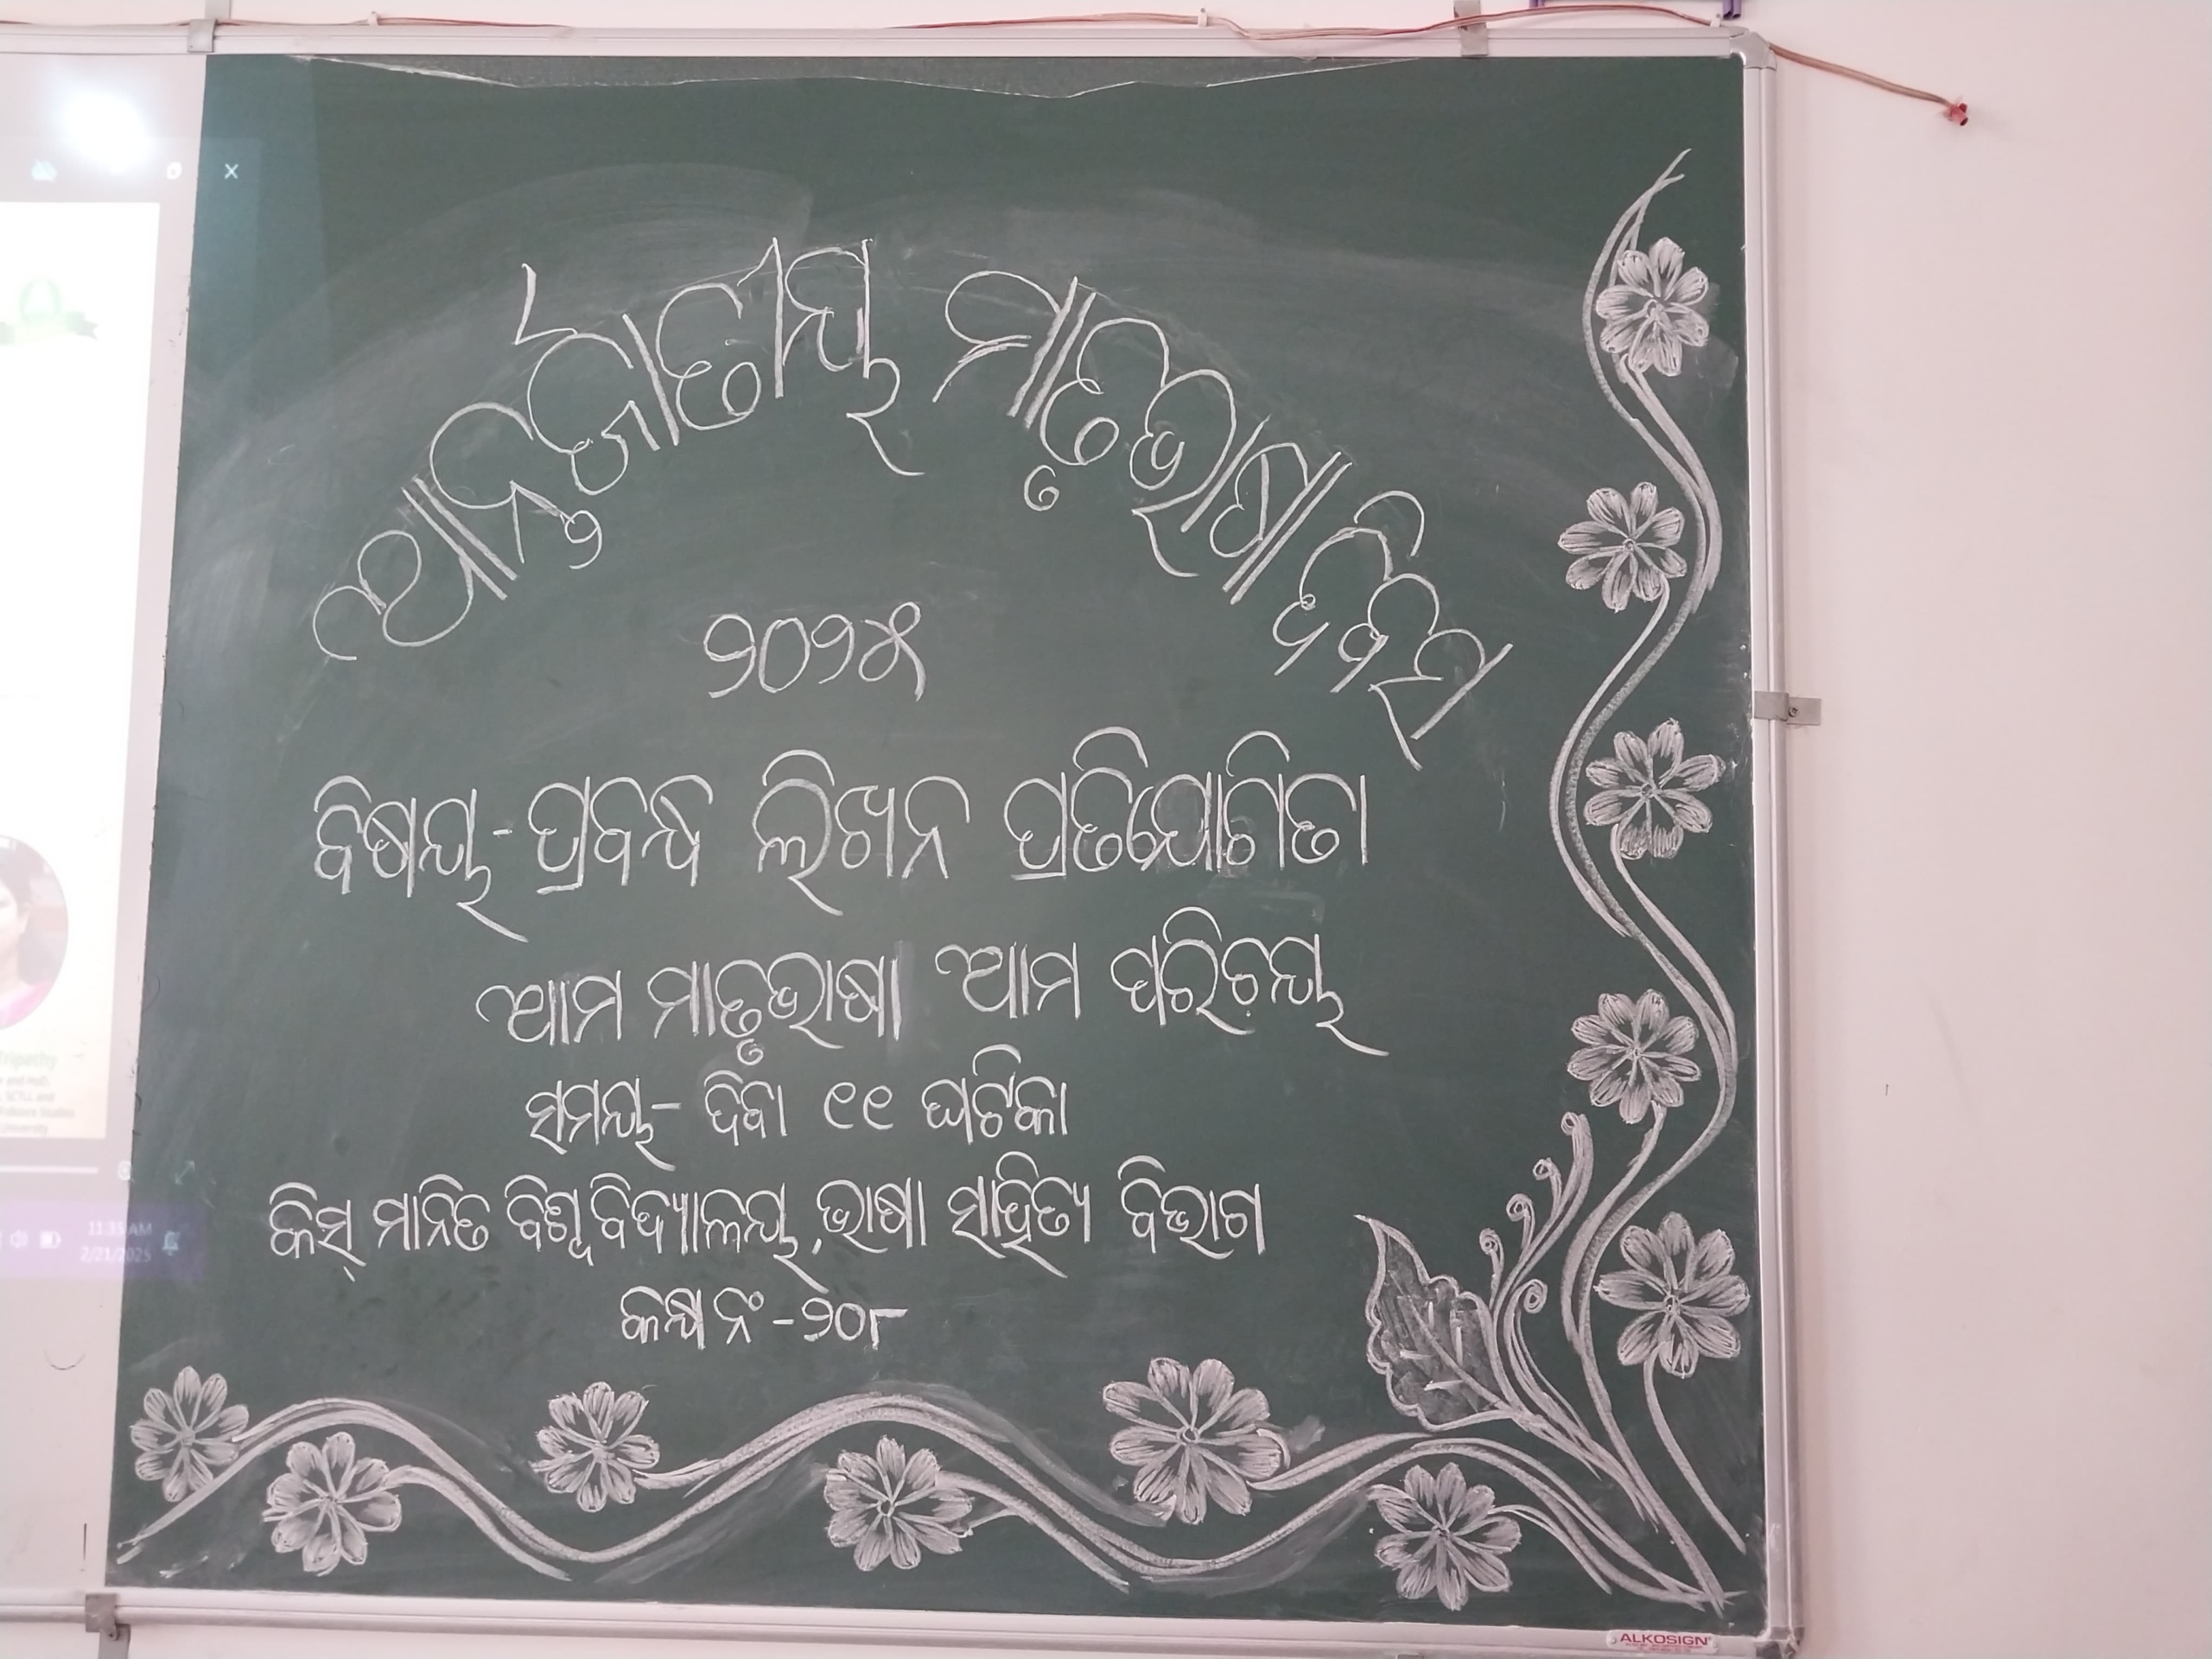 ଆନ୍ତର୍ଜାତୀୟ ମାତୃଭାଷା ଦିବସ
୨୦୨୫
ବିଷୟ-ପ୍ରବନ୍ଧ ଲିଖନ ପ୍ରତିଯୋଗିତା
ଆମ ମାତୃଭାଷା ଆମ ପରିଚୟ
ସମୟ- ଦିବା ୧୧ ଘଟିକା
କିସ୍ ମାନିତ ବିଶ୍ୱବିଦ୍ୟାଳୟ, ଭାଷା ସାହିତ୍ୟ ବିଭାଗ
କକ୍ଷ ନଂ -୨୦୮
Tripathy
University
11:35 AM
2/21/2025
ALKOSIGN